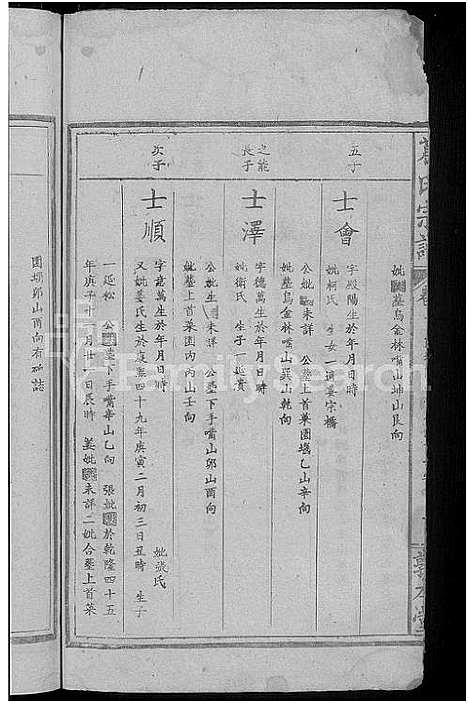 妣墓烏金林嘴山坤山艮向
五子
士會
字殿陽生於年月日時
妣柯氏 生女一適姜宗橋
公妣未詳 公墓上首菓園塆乙山辛向
妣墓烏金林嘴山巽山乾向
之能長子
士澤
字德萬生於年月日時
妣衛氏 生子一延貴
公妣生未詳 公墓下手嘴山卯山酉向
妣墓上首菜園內丙山壬向
次子
士順
字意萬生於年月日時 妣張氏
又妣姜氏生於康熙四十九年庚寅二月初三日丑時 生子
一延松 公墓下手嘴辛山乙向 張妣於乾隆四十五
年庚子十一月廿一日辰時 姜妣未詳二妣合墓上首菜
園塆卯山酉向有碑誌
氏宗譜
FamilySearch